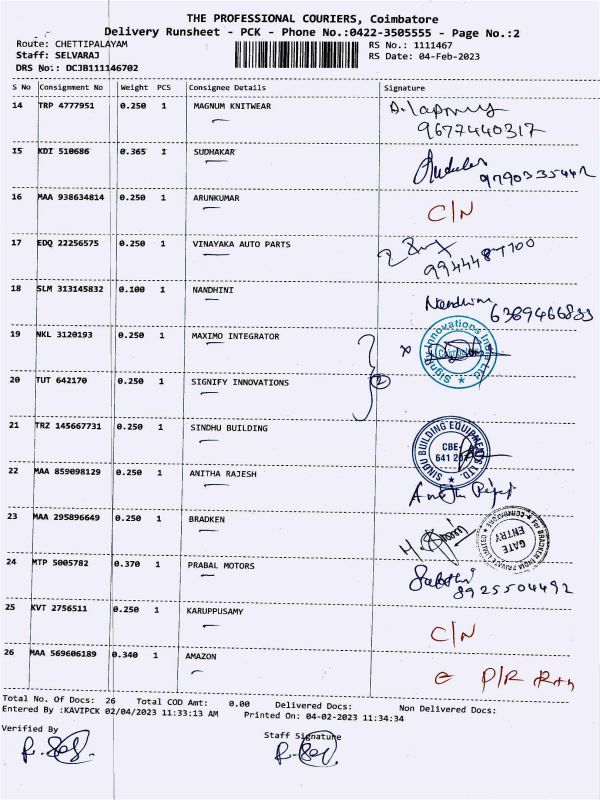 THE PROFESSIONAL COURIERS, Coimbatore
Delivery Runsheet - PCK - Phone No.:0422-3505555 - Page No.:2
Route: CHETTIPALAYAM RS No.: 1111467
Staff: SELVARAJ RS Date: 04-Feb-2023
DRS No.: DCJB111146702
S No Consignment No Weight PCS Consignee Details Signature
14 TRP 4777951 0.250 1 MAGNUM KNITWEAR
9677440317
15 KDI 510686 0.365 1 SUDHAKAR
16 MAA 938634814 0.250 1 ARUNKUMAR C/N
17 EDQ 22256575 0.250 1 VINAYAKA AUTO PARTS
18 SLM 313145832 0.100 1 NANDHINI Nandhini
19 NKL 3120193 0.250 1 MAXIMO INTEGRATOR
Signify Innovations India Ltd.
20 TUT 642170 0.250 1 SIGNIFY INNOVATIONS 2
21 TRZ 145667731 0.250 1 SINDHU BUILDING
SINDU BUILDING EQUIPMENTS LTD.
CBE-
22 MAA 859098129 0.250 1 ANITHA RAJESH
23 MAA 295896649 0.250 1 BRADKEN
For BRADKEN INDIA PRIVATE LIMITED COIMBATORE
GATE
ENTRY
24 MTP 5005782 0.370 1 PRABAL MOTORS
8925504492
25 KVT 2756511 0.250 1 KARUPPUSAMY C/N
26 MAA 569606189 0.340 1 AMAZON P/R
Total No. Of Docs: 26 Total COD Amt: 0.00 Delivered Docs: Non Delivered Docs:
Entered By :KAVIPCK 02/04/2023 11:33:13 AM Printed On: 04-02-2023 11:34:34
Verified By Staff Signature